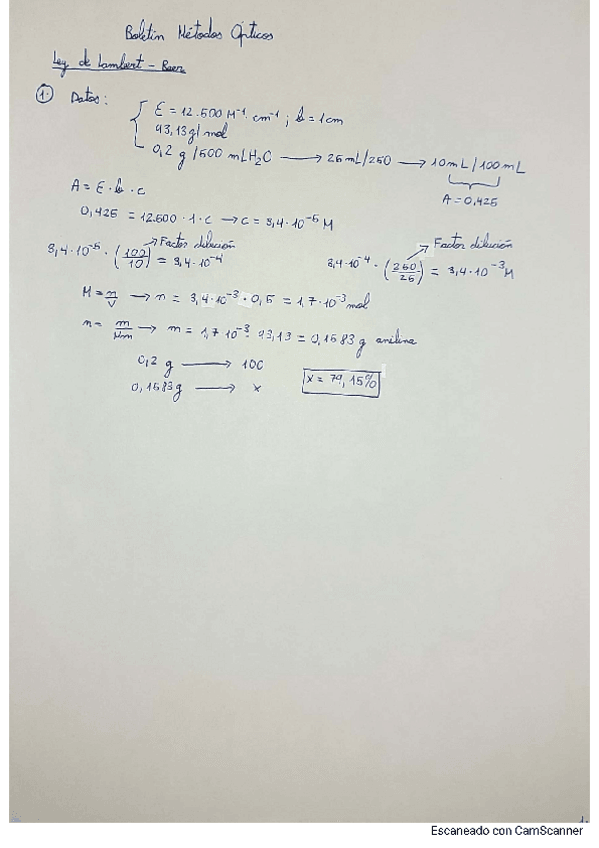 Boletín Métodos Ópticos
Ley de Lambert - Beer
1. Datos:
ε = 12.500 M⁻¹ · cm⁻¹ ; b = 1 cm
93,13 g/mol
0,2 g / 500 mL H₂O → 25 mL/250 → 10 mL / 100 mL
A = 0,425
A = ε · b · c
0,425 = 12.500 · 1 · c → c = 3,4 · 10⁻⁵ M
3,4 · 10⁻⁵ · (100/10) = 3,4 · 10⁻⁴ → Factor dilución
3,4 · 10⁻⁴ · (250/25) = 3,4 · 10⁻³ M → Factor dilución
M = n/V → n = 3,4 · 10⁻³ · 0,5 = 1,7 · 10⁻³ mol
n = m/Mm → m = 1,7 · 10⁻³ · 93,13 = 0,1583 g anilina
0,2 g → 100
0,1583 g → x
x = 79,15%
1.
Escaneado con CamScanner